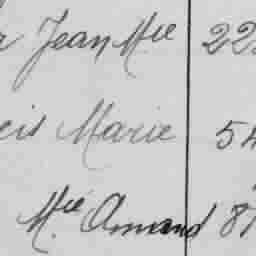 Jean Mie 22
Marie 54
Mie Armand 8